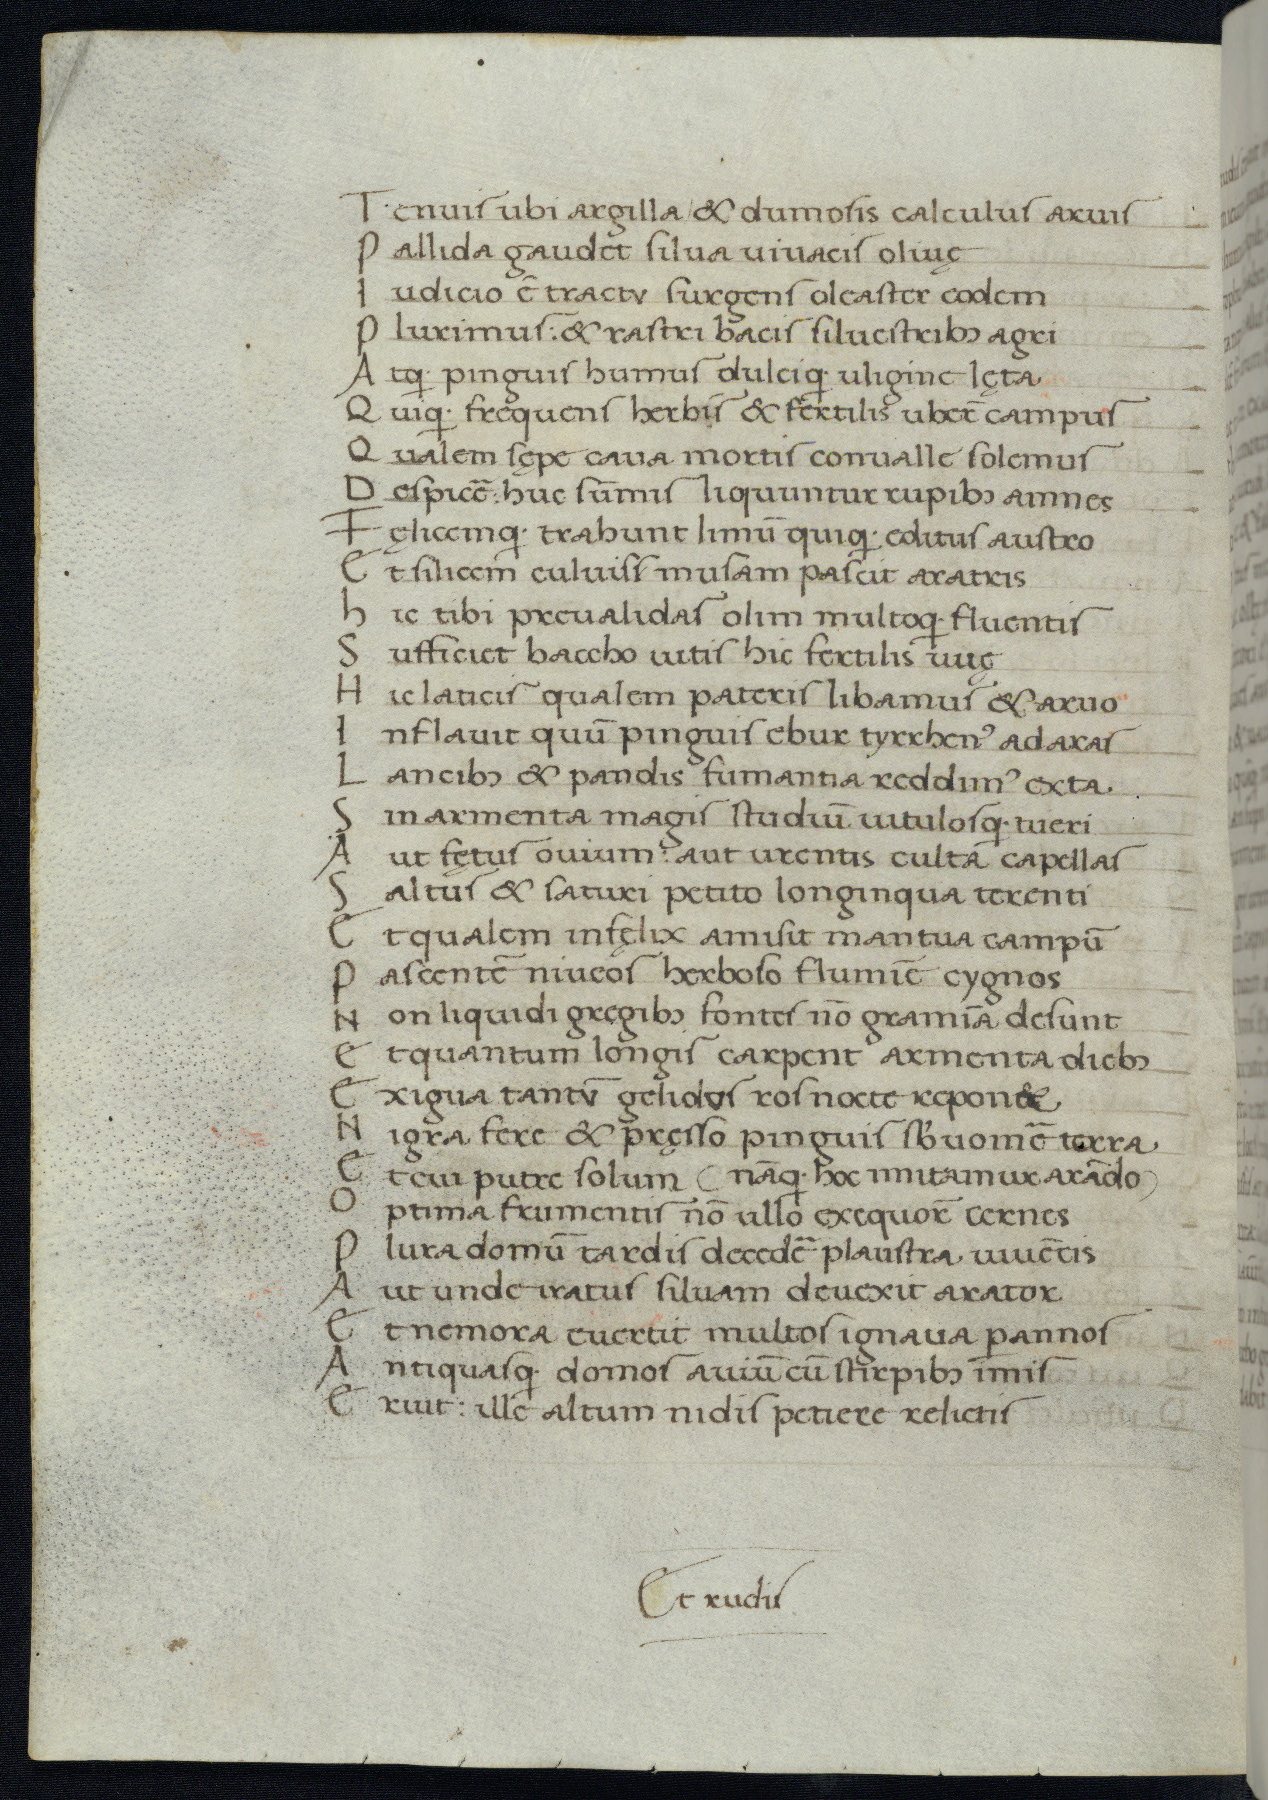 Tenuis ubi argilla / & dumosis calculus aruis
Pallida gaudet silua uiuacis oliuę
Iudicio ē tractu surgens oleaster eodem
Plurimus: & rastri bacis siluestribꝫ agri
Atq· pinguis humus dulciq· uligine lęta
Quiq· frequens herbis & fertilis uberē campus
Qualem sępe caua mortis conualle solemus
Despicē̄: huc sūmis liquuntur rupibꝫ amnes
Fęlicemq· trahunt limū quiq· editus austro
Et silicem culuis musam pascit aratris
hic tibi preualidas olim multoq· fluentis
Sufficiet baccho uitis hic fertilis uuę
Hic laticis qualem pateris libamus & aruo
Inflauit quū pinguis ebur tyrrhenꝰ ad aras
Lancibꝫ & pandis fumantia reddimꝰ exta.
Sin armenta magis studiū uitulosq· tueri
Aut fętus ouium: aut urentis culta capellas
Saltus & saturi petito longinqua terenti
Et qualem infęlix amisit mantua campū
Pascentē niueos herboso flumīe cygnos
Non liquidi gregibꝫ fontes nō gramīa desunt
Et quantum longis carpent armenta diebꝫ
Exigua tantū gelidus ros nocte repon&
Nigra fere & pręsso pinguis sb uomē̄ terra
Et cui putre solum (nāq· hoc imitamur arādo)
Optima frumentis nō ullo exequorē cernes
Plura domū tardis decedē̄ plaustra iuuētis
Aut unde iratus siluam deuexit arator
Et nemora euertit multos ignaua p annos
Antiquasq· domos auiū cū stirpibꝫ īmis
Eruit: ille altum nidis petiere relictis
Et rudis